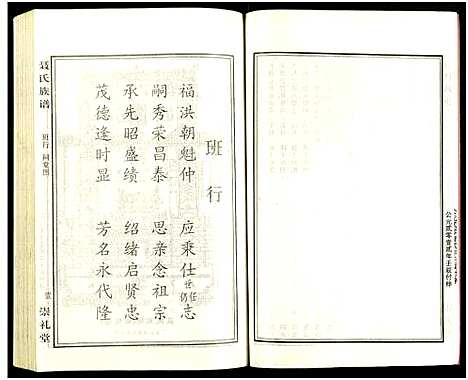 公元贰零壹贰年壬辰付梓
班行
福洪朝魁仲 应乘仕世仍任志
嗣秀荣昌泰 思亲念祖宗
承先昭盛绩 绍绪启贤忠
茂德逢时显 芳名永代隆
聂氏族谱
班行 祠堂图
壹
崇礼堂